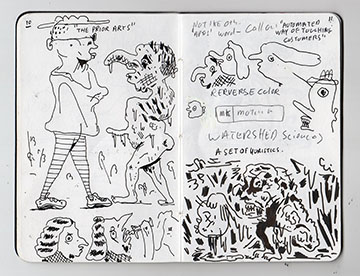 10
"THE PRIOR ARTS"
11
NOT THE
APPS! word - Collar:
"AUTOMATED
WAY OF TOUCHING
CUSTOMERS"
RERVERSE COLOR
WATERSHED Sciences
A SET OF QURISTICS.